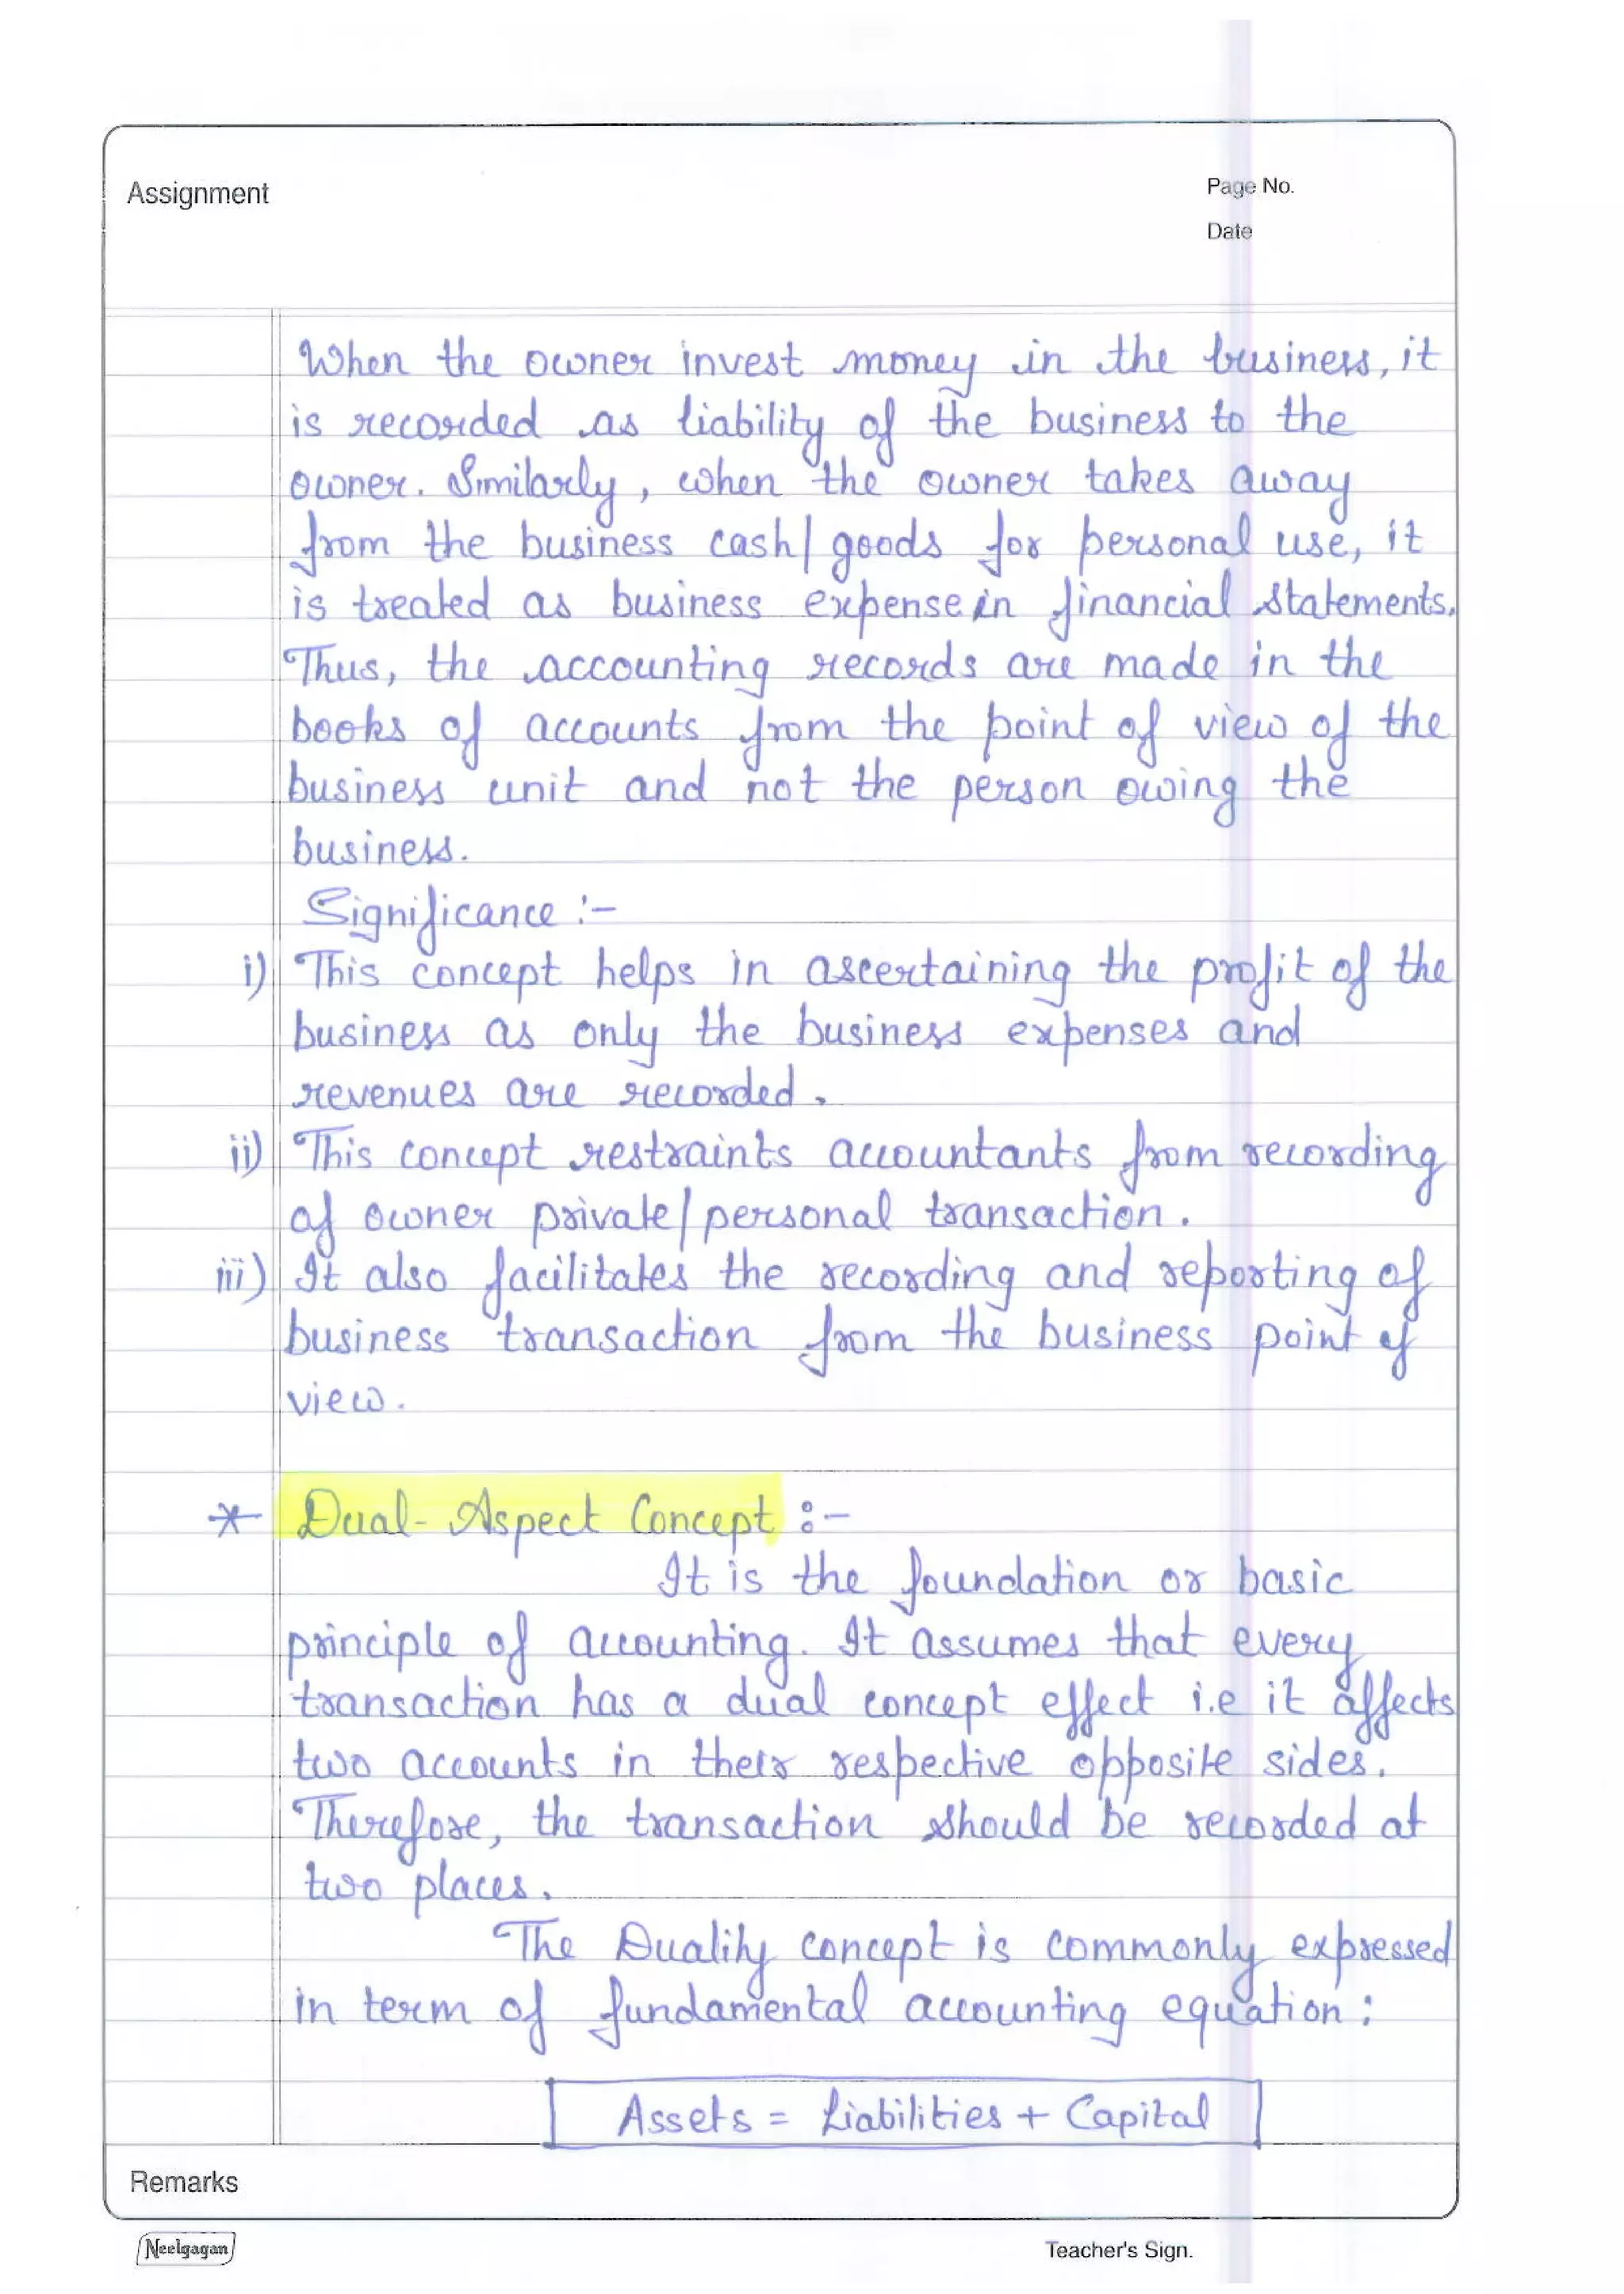 Assignment
Page No.
Date
When the owner invest money in the business, it
is recorded as liability of the business to the
owner. Similarly, when the owner takes away
from the business cash/goods for personal use, it
is treated as business expense in financial statements.
Thus, the accounting records are made in the
books of accounts from the point of view of the
business unit and not the person owing the
business.
Significance :-
i) This concept helps in ascertaining the profit of the
business as only the business expenses and
revenues are recorded.
ii) This concept restraints accountants from recording
of owner private/personal transaction.
iii) It also facilitates the recording and reporting of
business transaction from the business point of
view.
* Dual-Aspect Concept :-
It is the foundation or basic
principle of accounting. It assumes that every
transaction has a dual concept effect i.e it affects
two accounts in their respective opposite sides.
Therefore, the transaction should be recorded at
two places.
The Duality concept is commonly expressed
in term of fundamental accounting equation :
Assets = Liabilities + Capital
Remarks
Neelgagan
Teacher's Sign.